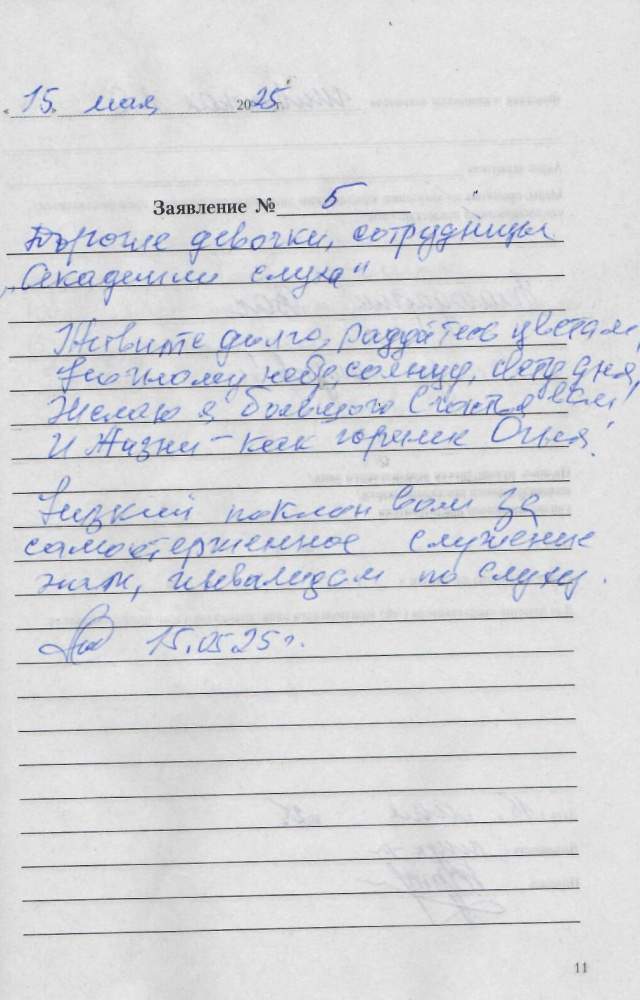 «15» мая 2025г.
Заявление № 5
Дорогие девочки, сотрудницы
„Академии слуха“
Живите долго, радуйтесь цветам,
небу, солнцу, свету дня,
Желаю я большого Счастья вам
И Жизни – как горения Огня!
Низкий поклон вам за
самоотверженное служение
нам, инвалидам по слуху.
15.05.25г.
11